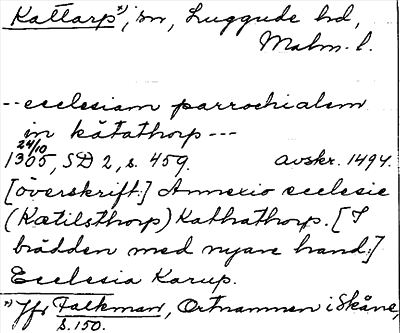 Kattarp*), sn, Luggude hd,
Malm. l.
-- ecclesiam parrochialem
in kåtathorp ---
24/10
1305, SD 2, s. 459. avskr. 1494.
[överskrift:] Annexio ecclesie
(Kætilsthorp) Kathathorp. [I
brädden med nyare hand:]
Ecclesia Karup.
*) Jfr Falkman, Ortnamnen i Skåne,
s. 150.